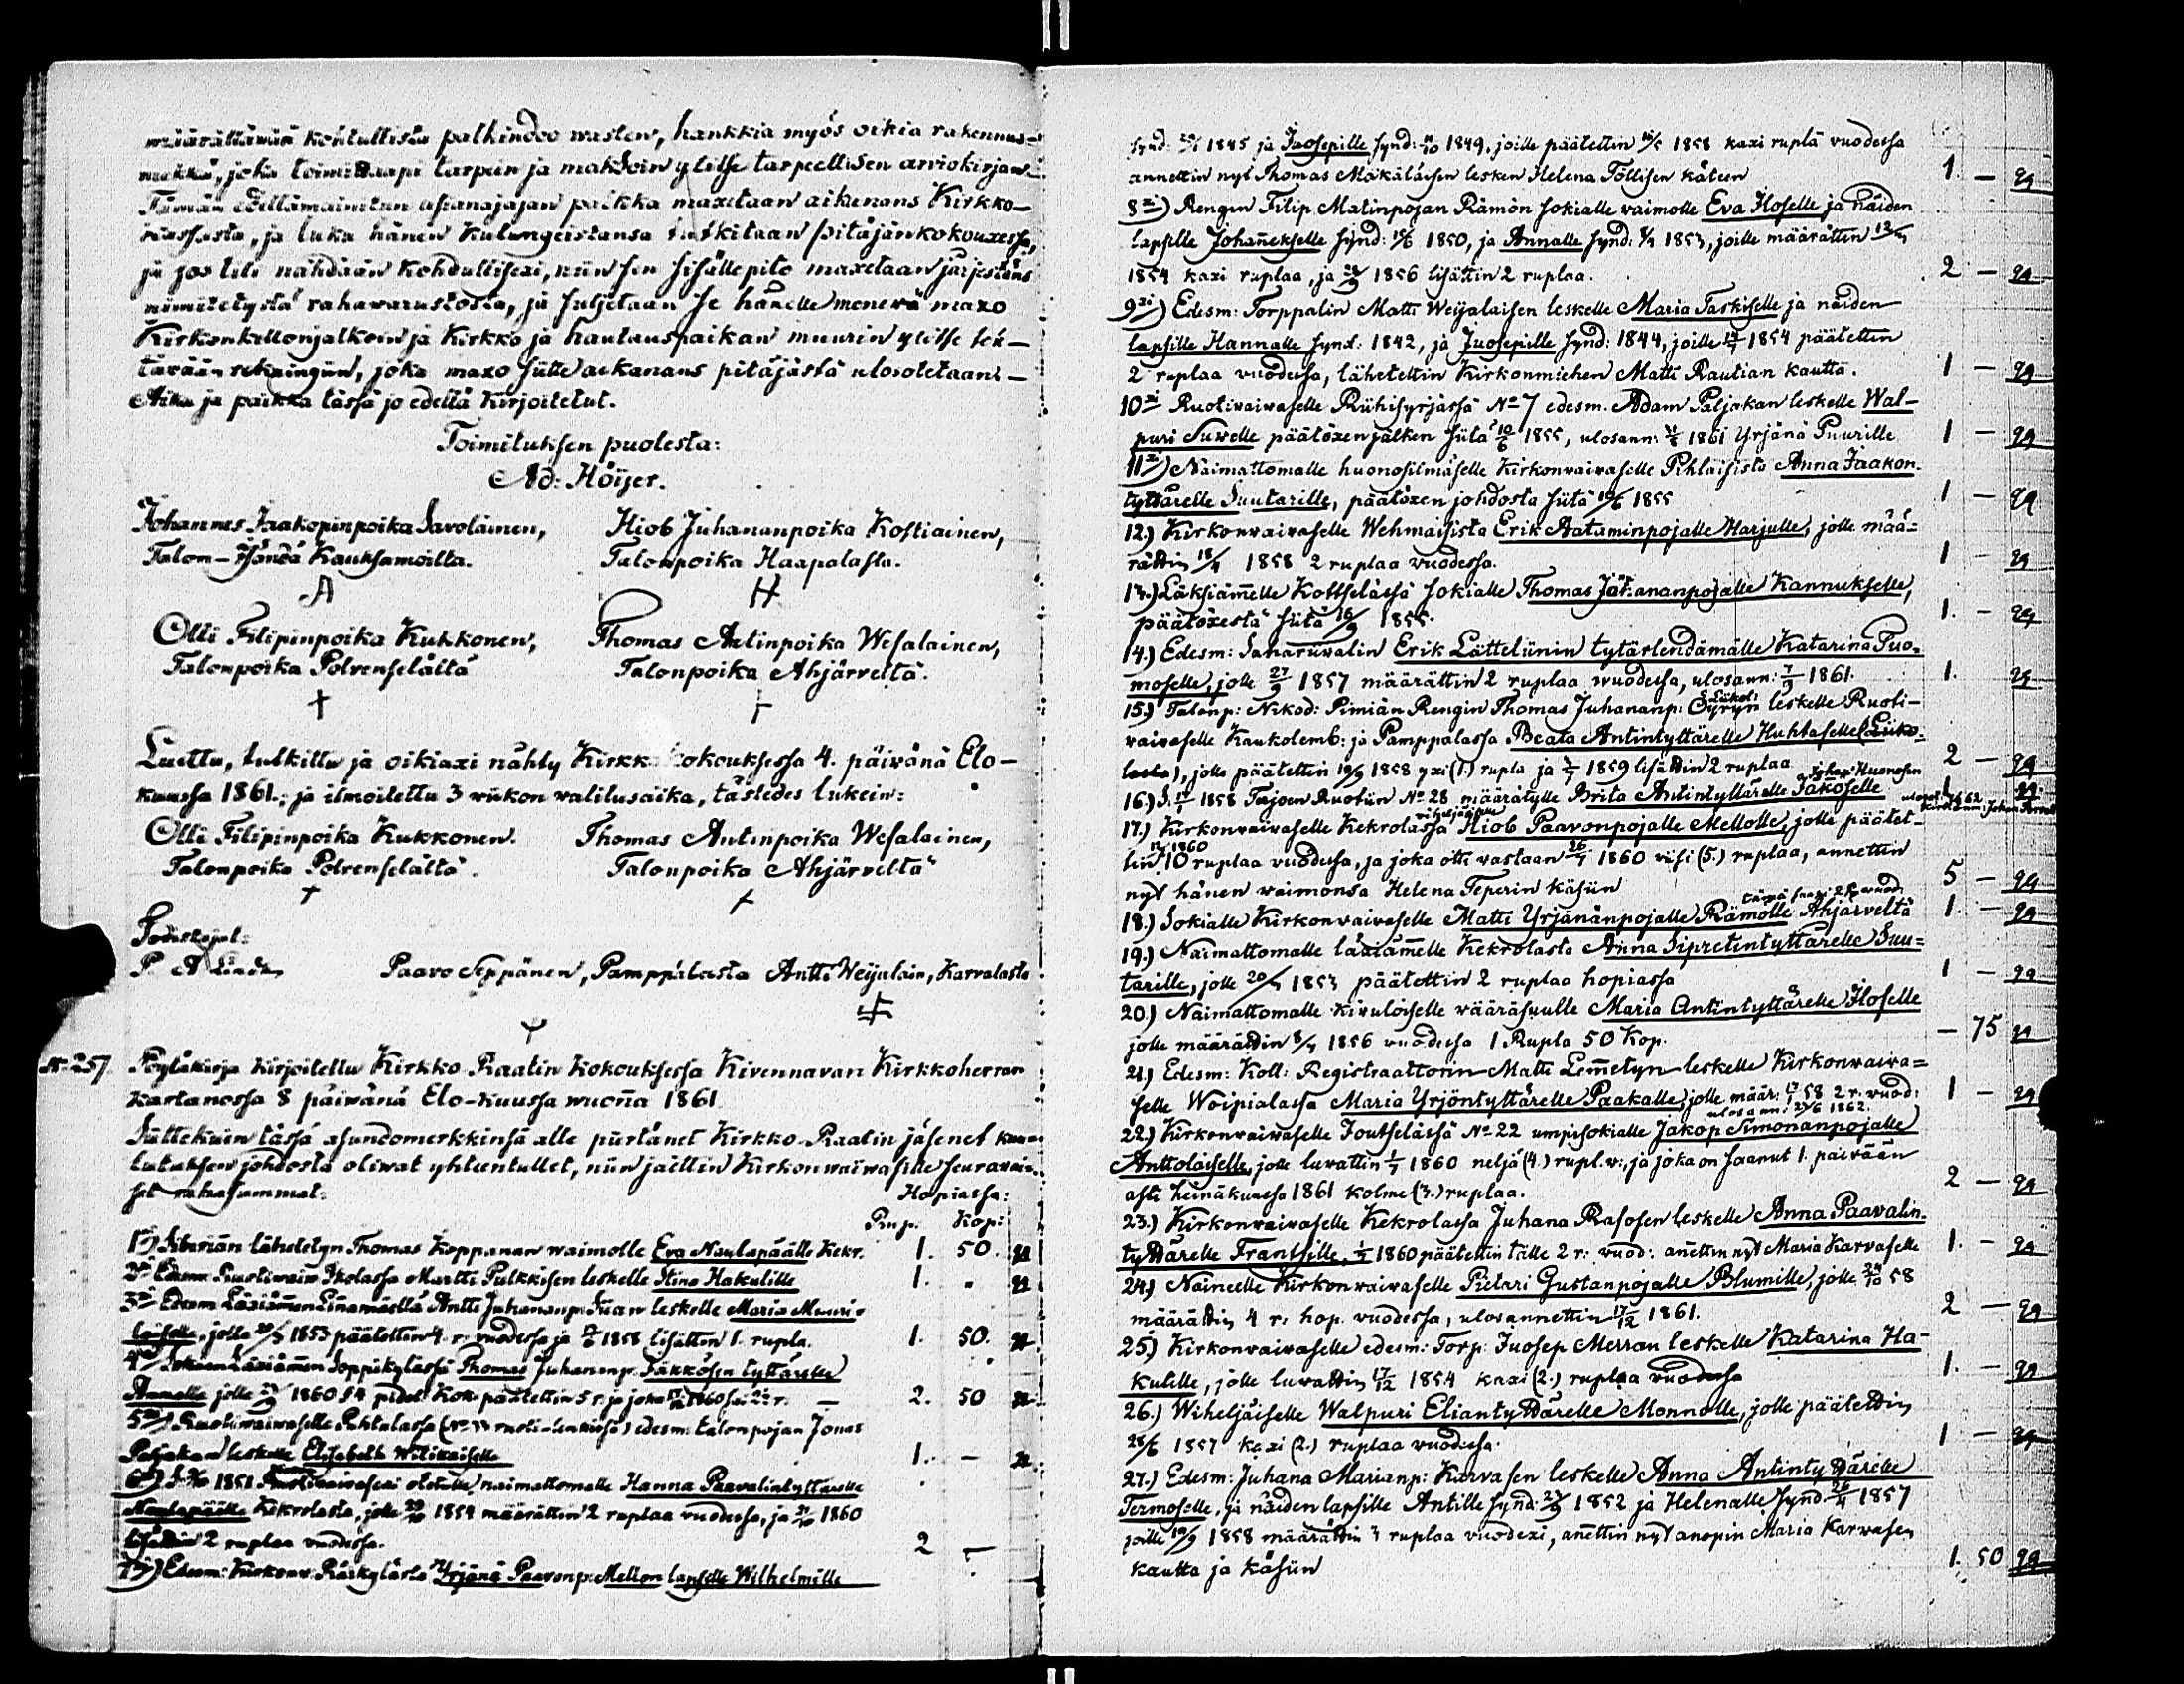 määrättäwän kohtullista palkindoo wasten, hankkia myös oikia rakennus-
joka toimittaapi tarpeen ja makson ylitse tarpeellisen arviokirjan.
Tämän edellämainitun asianajajan palkka maxetaan aikanans Kirkko-
kassasta, ja luku hänen Kulungeistansa tutkitaan pitäjänkokouxessa,
ja jos tili nähdään kohdullisexi, niin sen sisällepito maxetaan järjestäns
nimitetystä rahawarustosta, ja suljetaan se hänelle menewä maxo
Kirkonkellonjalkoin ja Kirkko ja hautauspaikan muurin ylitse teh-
tävään rekningiin, joka maxo sitte aikanans pitäjästä ulosotetaan.-
Aika ja paikka tässä jo edellä Kirjoitetut.
Toimituksen puolesta:
Ad: Höijer.
Johannes Jaakopinpoika Savolainen, Hiob Juhananpoika Kostiainen,
Talon-Isändä Kauksamoilta. Talonpoika Haapalasta.
A H
Olli Filipinpoika Kukkonen, Thomas Antinpoika Wesalainen,
Talonpoika Polvenselältä Talonpoika Ahjärveltä.
Luettu, tutkittu ja oikiaxi nähty Kirkkokokouksessa 4. päivänä Elo-
kuussa 1861.; ja ilmoitettu 3 wiikon valitusaika, tästedes lukein:
Olli Filipinpoika Kukkonen. Thomas Antinpoika Wesalainen,
Talonpoika Polvenselältä. Talonpoika Ahjärveltä
Todistajat:
P A Linden Paavo Seppänen, Pamppalasta Antti Weijalain, Karvalasta
No 257 Pöytäkirja Kirjoitettu Kirkko-Raatin Kokouksessa Kivennavan Kirkkoherran
kartanossa 8 päivänä Elo-Kuussa wuoña 1861
Sittekuin tässä asundomerkkinsä alle piirtänet Kirkko-Raatin jäsenet kuu-
lutuksen johdosta oliwat yhteentullet, niin jaettiin Kirkonwaiwasille seuraavai-
set rahasummat: Hopiassa:
Rup. Kop:
1) Siberiän lähetetyn Thomas Koppanan waimolle Eva Naulapäälle Kekr. 1. 50.
2) Edesm: Ruotiwaiw Ikolassa Martti Pulkkisen leskelle Stina Hakulille 1.
3) Edesm Läsiämen Liñamäellä Antti Juhananp: Suan leskelle Maria Muuri-
laiselle, jolle 1853 päätettiin 4. r. vuodessa ja 1858 lisättin 1. rupla. 1. 50.
4) Läsiämen Soppikylässä Thomas Juhananp. Jäkkösen tyttärelle
Annalle jolle 1860 päätettin 5 r. ja joka 2. 50
5) Ruotiwaiwaselle Pihlalassa edesm: talonpojan Jonas
Paljakan leskelle Elisabeth Wilikaiselle 1. -
6) 1851 Ruotiwaiwasexi otetulle naimattomalle Hanna Paavalintyttärelle
Naulapäälle Kekrolasta, jolle 1854 määrättin 2 ruplaa vuodessa, ja 1860
lisättin 2 ruplaa vuodessa. 2 -
7) Edesm: Kirkonv: Räikylästä Yrjänä Paavonp: Mellon lapselle Wilhelmille
synd: 1845 ja Juosepille synd: 1849, joille päätettin 1858 kaxi ruplä vuodessa
annettin nyt Thomas Mäkäläisen lesken Helena Töllisen käteen 1. -
8) Rengin Filip Matinpojan Rämön sokialle vaimolle Eva Iloselle ja näiden
lapsille Johañekselle synd: 15/6 1850, ja Annalle synd: 1853, joille määrättin
1854 kaxi ruplaa, ja 1856 lisättin 2 ruplaa. 2 -
9) Edesm: Torppalin Matti Weijalaisen leskelle Maria Taskiselle ja näiden
lapsille Hannalle synd: 1842, ja Juosepille synd: 1844, joille 1854 päätettin
2 ruplaa vuodessa, lähetettin Kirkonmiehen Matti Rautian kautta. 1 -
10) Ruotivaivaselle Riihisyrjässä No 7 edesm. Adam Paljakan leskelle Wal-
puri Suvelle päätöxen jälken siitä 10/6 1855, ulosann: 1861 Yrjänä Puurille 1 -
11) Naimattomalle huonosilmäselle Kirkonvaivaselle Pihlaisista Anna Jaakon-
tyttärelle Suutarille, päätöxen johdosta siitä 10/6 1855 1 -
12.) Kirkonvaivaselle Wehmaisista Erik Aataminpojalle Harjulle, jolle mää-
rättin 18/4 1858 2 ruplaa vuodessa. 1 -
13.) Läksiämelle Kottselässä sokialle Thomas Juhananpojalle Kannukselle,
päätöxestä siitä 16/9 1855. 1. -
14.) Edesm: Sanaruvalin Erik Lätteliinin tytärlendämälle Katarina Puo-
moselle, jolle 27/9 1857 määrättin 2 ruplaa wuodessa, ulosann: 7/9 1861. 1.
15.) Talonp: Nikod: Pimiän Rengin Thomas Juhananp: Öyryn leskelle Ruoti-
vaivaselle Kaukolemb: ja Pamppalassa Beata Antintyttärelle Huhtaselle (Liiko-
lasta), jolle päätettin 19/9 1858 yxi (1.) rupla ja 1859 lisättin 2 ruplaa 2 -
16.) 1858 Tajoen Ruotiin No 28 määrätylle Brita Antintyttärelle Jäköselle 1
17.) Kirkonvaivaselle Kekrolassa Hiob Paavonpojalle Mellolle, jolle päätet-
tin 10 ruplaa vuodessa, ja joka otti vastaan 26/7 1860 viisi (5.) ruplaa, annettin
nyt hänen waimonsa Helena Teperin käsiin 5 -
18.) Sokialle Kirkonvaivaselle Matti Yrjänänpojalle Rämölle Ahjärveltä 1. -
19.) Naimattomalle läsiämelle Kekrolasta Anna Sipretintyttärelle Suu-
tarille, jolle 1853 päätettin 2 ruplaa hopiassa 1 -
20.) Naimattomalle kivuloiselle vääräsuulle Maria Antintyttärelle Iloselle
jolle määrättin 1856 vuodessa 1 Rupla 50 Kop. - 75
21.) Edesm: Koll: Registraattorin Matti Lemetyn leskelle Kirkonvaiva-
selle Woipialassa Maria Yrjöntyttärelle Paakalle, jolle määr: 58 2 r: vuod: 1 -
22.) Kirkonvaivaselle Joutselässä No 22 umpisokialle Jakop Simonanpojalle
Anttolaiselle, jolle luvattin 1860 neljä (4.) rupl. v:, ja joka on saanut 1. päivään
asti heinäkuussa 1861 kolme (3.) ruplaa. 2 -
23.) Kirkonvaivaselle Kekrolassa Juhana Rasosen leskelle Anna Paavalin-
tyttärelle Frantsille, 1860 päätettin tälle 2 r: vuod: anettin nyt Maria Karvaselle 1. -
24.) Naineelle Kirkonvaivaselle Pietari Gustanpojalle Blumille, jolle 24/10 58
määrättin 4 r: hop. vuodessa, ulosannettin 17/12 1861. 2 -
25.) Kirkonvaivaselle edesm: Torp: Juosep Merran leskelle Katarina Ha-
kulille, jolle luvattin 17/12 1854 kaxi (2.) ruplaa vuodessa 1. -
26.) Wiheljäiselle Walpuri Eliantyttärelle Monnolle, jolle päätettin
28/6 1857 kaxi (2.) ruplaa vuodessa. 1 -
27.) Edesm: Juhana Marianp: Karvasen leskelle Anna Antintyttärelle
Termoselle, ja näiden lapsille Antille synd: 1852 ja Helenalle synd 26/4 1857
joille 19/9 1858 määrättin 3 ruplaa vuodexi, anettin nyt anopin Maria Karvasen
kautta ja käsiin 1. 50